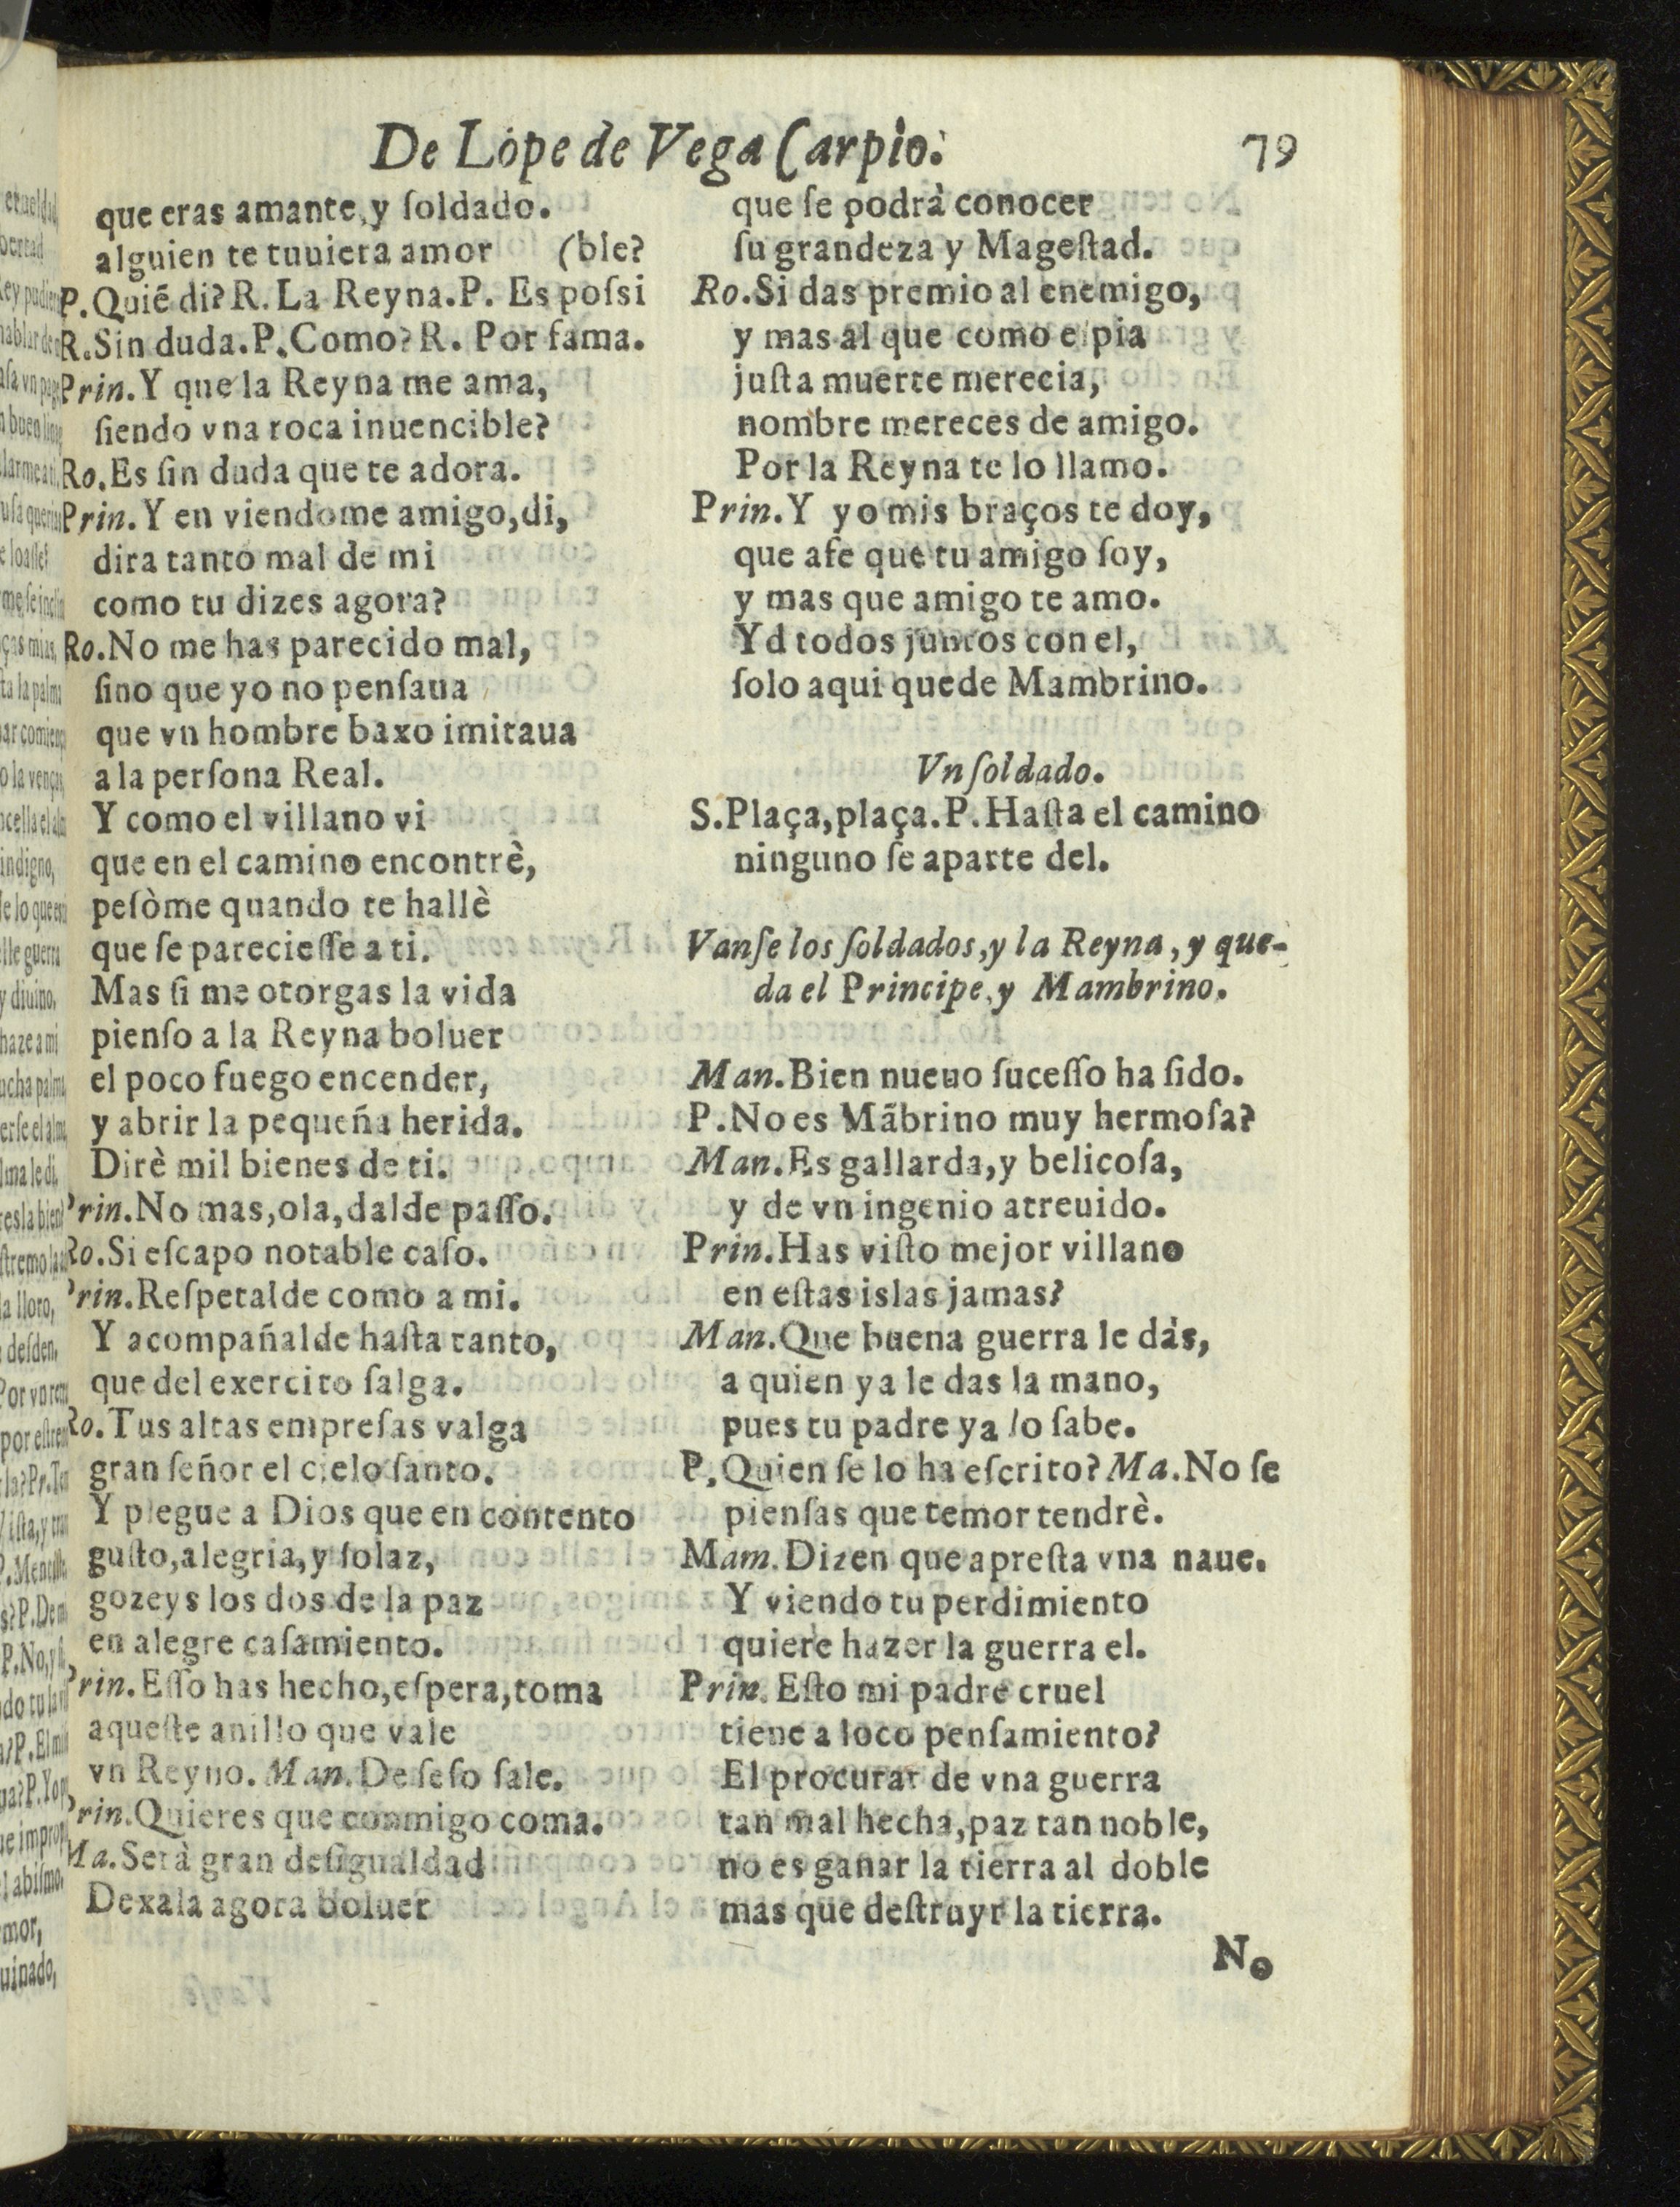 De Lope de Vega Carpio.
79
que eras amante, y ſoldado.
alguien te tuuiera amor (ble?
P. Quiẽ di? R. La Reyna. P. Es poſsi
R. Sin duda. P. Como? R. Por fama.
Prin. Y que la Reyna me ama,
ſiendo vna roca inuencible?
Ro. Es ſin duda que te adora.
Prin. Y en viendome amigo, di,
dira tanto mal de mi
como tu dizes agora?
Ro. No me has parecido mal,
ſino que yo no penſaua
que vn hombre baxo imitaua
a la perſona Real.
Y como el villano vi
que en el camino encontrè,
peſòme quando te hallè
que ſe parecieſſe a ti.
Mas ſi me otorgas la vida
pienſo a la Reyna boluer
el poco fuego encender,
y abrir la pequeña herida.
Dirè mil bienes de ti.
Prin. No mas, ola, dalde paſſo.
Ro. Si eſcapo notable caſo.
Prin. Reſpetalde como a mi.
Y acompañalde haſta tanto,
que del exercito ſalga.
Ro. Tus altas empreſas valga
gran ſeñor el cielo ſanto.
Y plegue a Dios que en contento
guſto, alegria, y ſolaz,
gozeys los dos de la paz
en alegre caſamiento.
Prin. Eſſo has hecho, eſpera, toma
aqueſte anillo que vale
vn Reyno. Man. De ſeſo ſale.
Prin. Quieres que conmigo coma.
Ma. Serà gran deſigualdad
Dexala agora boluer
que ſe podrà conocer
ſu grandeza y Mageſtad.
Ro. Si das premio al enemigo,
y mas al que como eſpia
juſta muerte merecia,
nombre mereces de amigo.
Por la Reyna te lo llamo.
Prin. Y yo mis braços te doy,
que afe que tu amigo ſoy,
y mas que amigo te amo.
Yd todos juntos con el,
ſolo aqui quede Mambrino.
Vn ſoldado.
S. Plaça, plaça. P. Haſta el camino
ninguno ſe aparte del.
Vanſe los ſoldados, y la Reyna, y que-
da el Principe, y Mambrino.
Man. Bien nueuo ſuceſſo ha ſido.
P. No es Mãbrino muy hermoſa?
Man. Es gallarda, y belicoſa,
y de vn ingenio atreuido.
Prin. Has viſto mejor villano
en eſtas islas jamas?
Man. Que buena guerra le dàs,
a quien ya le das la mano,
pues tu padre ya lo ſabe.
P. Quien ſe lo ha eſcrito? Ma. No ſe
pienſas que temor tendrè.
Mam. Dizen que apreſta vna naue.
Y viendo tu perdimiento
quiere hazer la guerra el.
Prin. Eſto mi padre cruel
tiene a loco penſamiento?
El procurar de vna guerra
tan mal hecha, paz tan noble,
no es ganar la tierra al doble
mas que deſtruyr la tierra.
No